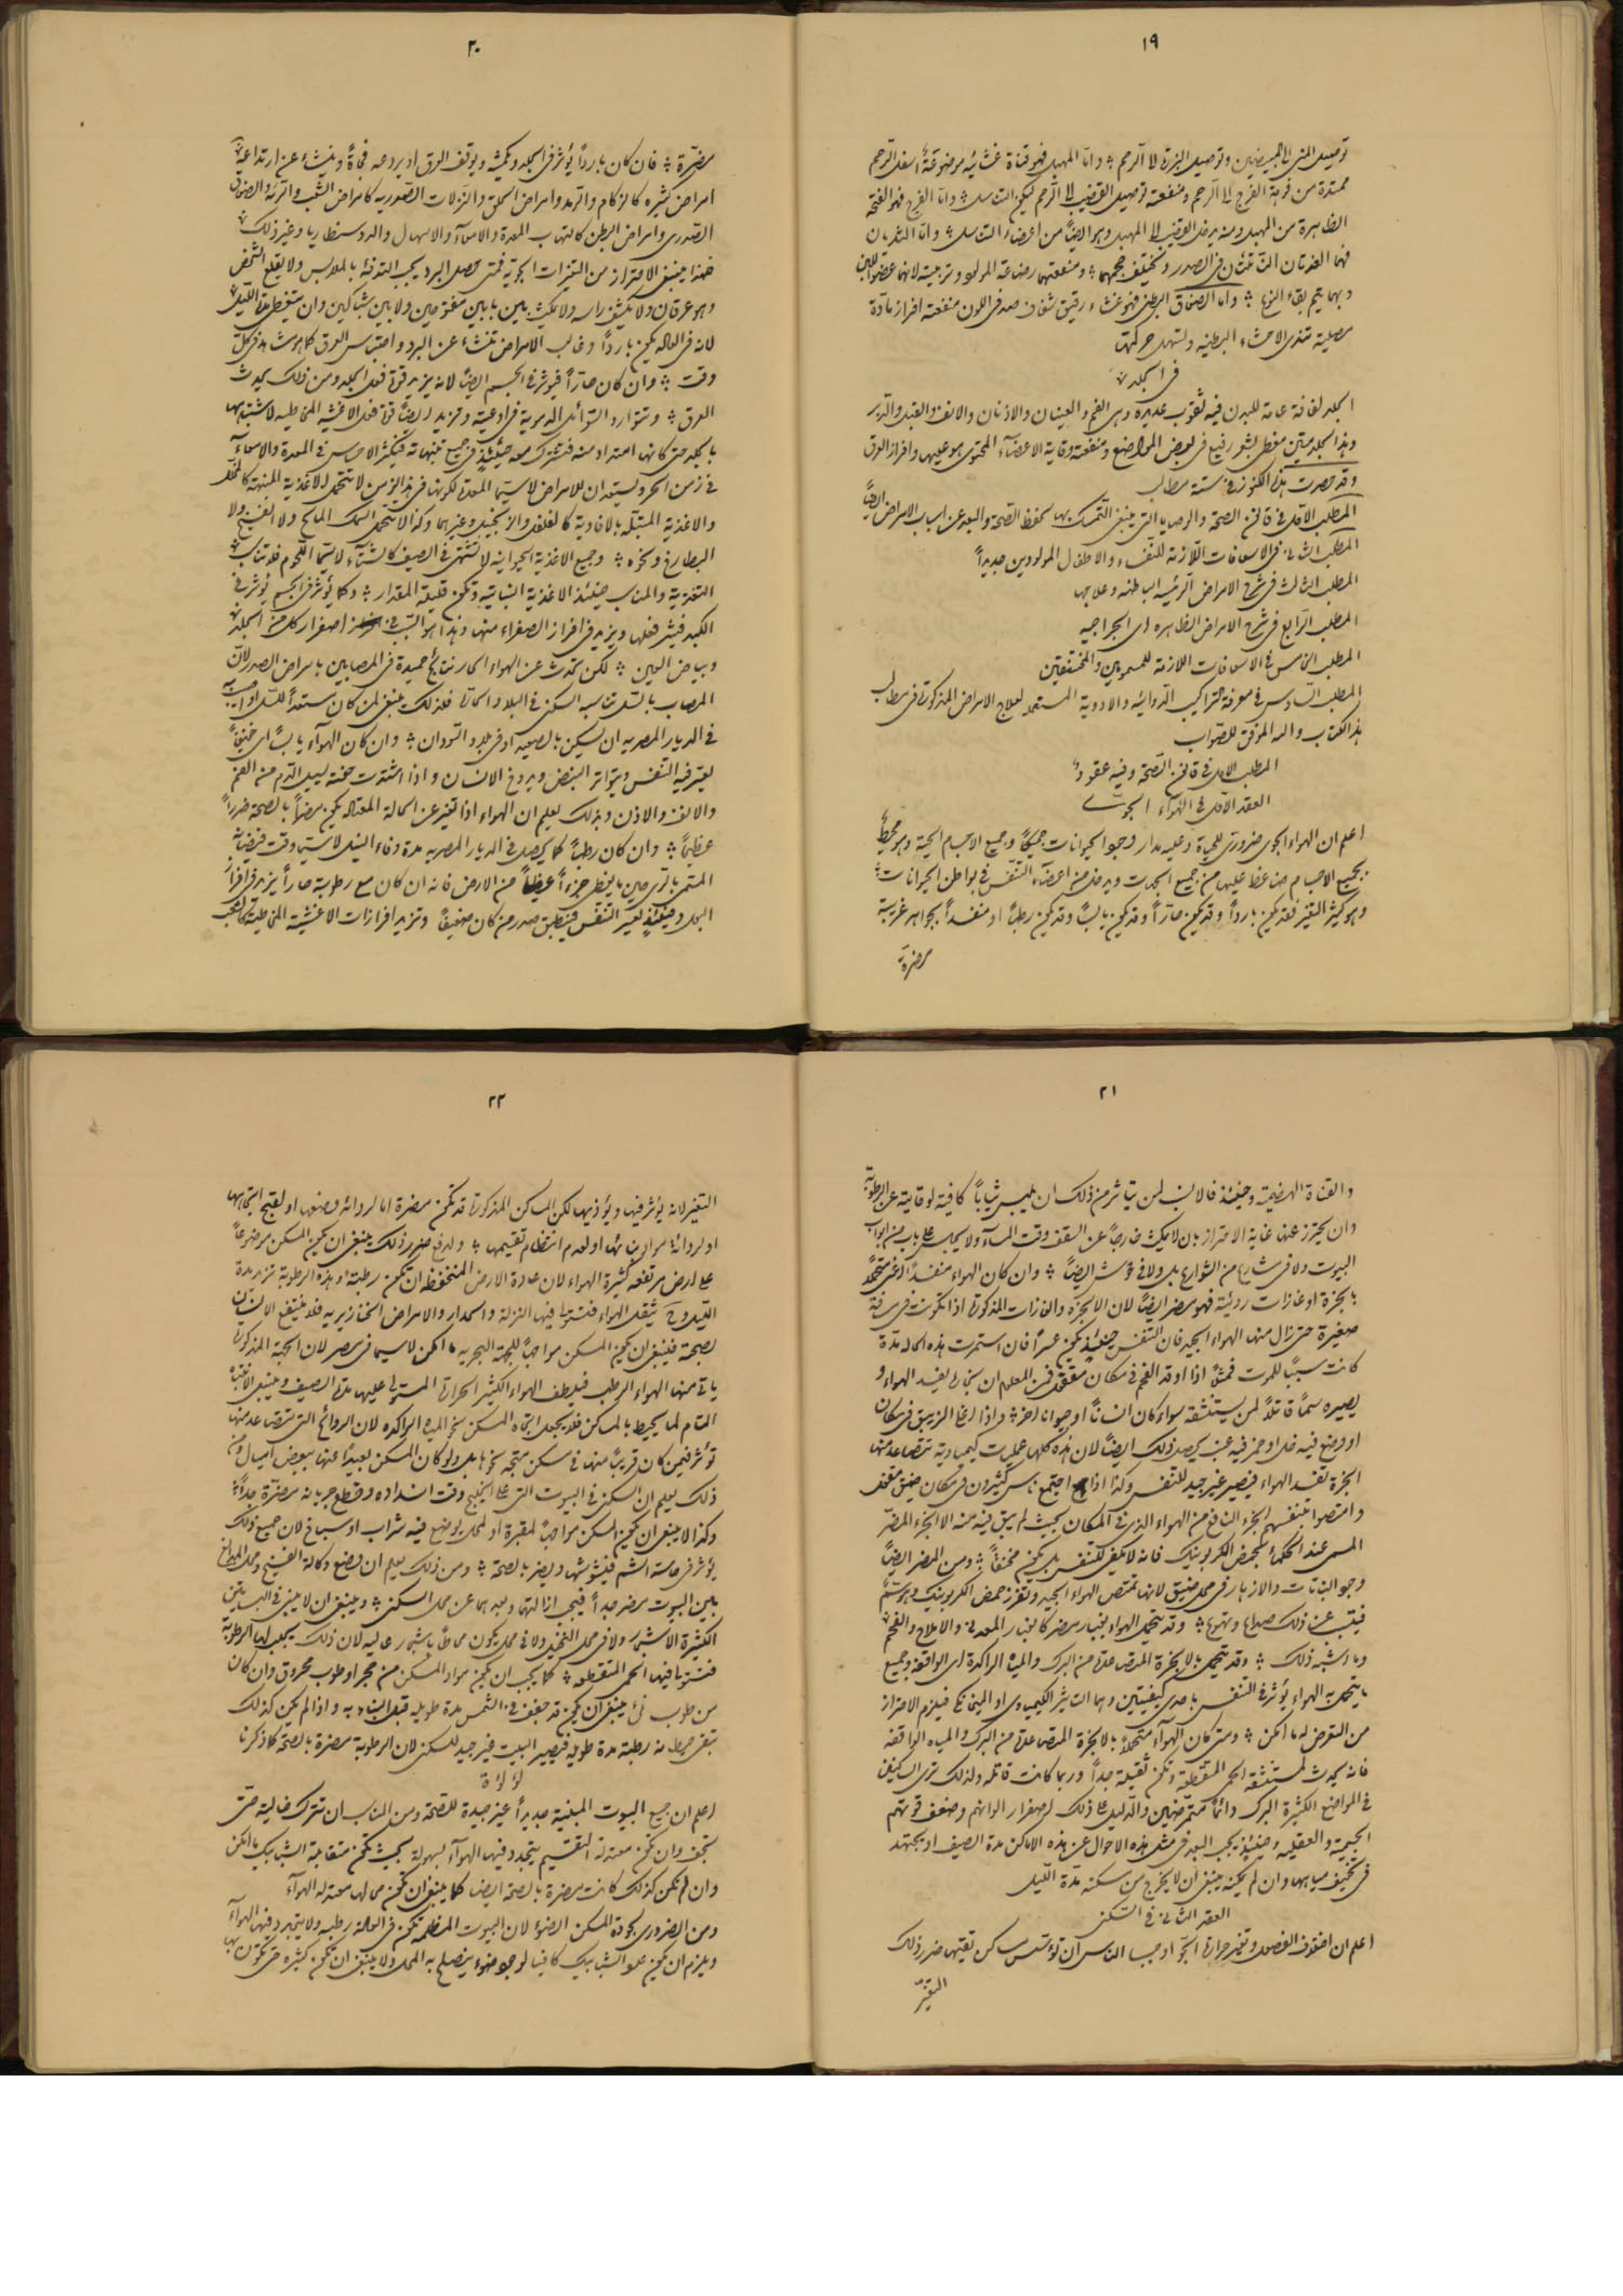 ١٩
توصيل المنى الى المبيضين وتوصيل البزرة الى الرحم وانّ المهبل فهو قناة غشائيه موضوعة اسفل الرحم
ممتدة من فوهة الفرج الى الرحم ومنفعته توصيل القضيب الى الرحم ليكون التناسل وامّا الفرج فهو الفتحة
الظاهرة من المهبل ومنه يدخل القضيب الى المهبل وهو ايضاً من اعضاء التناسل وامّا الثديان
فهما الغدتان اللتان فى الصدر ويختلف حجمهما ومنفعتهما رضاعة المولود وتربيته لانهما عضوا اللبن
وبهما يتم بقاء النوع وامّا الصفاق البطنى فهو غشاء رقيق شفاف صدفى اللون منفعته افراز مادّة
مصلية تندى الاحشاء البطنيه وتسهل حركتها
فى الجلد
الجلد لفافة عامة للبدن فيه ثقوب عديدة وهى الفم والعينان والاذنان والانف والقبل والدبر
وهذا الجلد متين مغطى بشعر رفيع فى بعض المواضع ومنفعته وقاية الاعضآء المحتوى هو عليها وافراز العرق
وقد حصرت هذه الكنوز فى ستة مطالب
المطلب الاوّل فى قانون الصحة والوصايا التى ينبغى التمسك بها لحفظ الصحة والبعد عن اسباب الامراض ايضاً
المطلب الثانى فى الاسعافات اللازمة للنفساء والاطفال المولودين جديداً
المطلب الثالث فى شرح الامراض الرئيسه الباطنه وعلاجها
المطلب الرابع فى شرح الامراض الظاهره اى الجراحيه
المطلب الخامس فى الاسعافات اللازمة للمسمومين والمختنقين
المطلب السادس فى معرفة التراكيب الدوائيه والادوية المستعملة لعلاج الامراض المذكورة فى مطالب
هذا الكتاب والله الموفق للصواب
المطلب الاول فى قانون الصحة وفيه عقود
العقد الاوّل فى الهوآء الجوى
اعلم ان الهواء الجوى ضرورى للحياة وعليه مدار وجود الحيوانات جميعاً وجميع الاجسام الحية وهو محيط
بجميع الاجسام ضاغط عليها من جميع الجهات ويدخل من اعضآء التنفس فى بواطن الحيوانات
وهو كثير التغير فقد يكون بارداً وقد يكون حارّاً وقد يكون يابساً وقد يكون رطباً او منفسداً بجواهر غريبة
مضرّة
٢٠
مضرّة فان كان بارداً يؤثر فى الجلد ويكمشه ويوقف العرق او يردعه فجأةً وينشاء عن ارتداعه
امراض كثيره كالزكام والرمد وامراض الحلق والنزلات الصدريه كامراض الشعب والرئه والصفاق
الصدرى وامراض البطن كالتهاب المعدة والامعآء والاسهال والدوسنطاريا وغير ذلك
فلهذا ينبغى الاحتراز من التغيرات الجوّية فمتى حصل البرد يجب التدفئه بالملابس ولا يقلع الشخص
وهو عرقان ولا يكشف راسه ولا يمكث بين بابين مفتوحين ولا بين شباكين وان يتغطى بالليل
لانه فى الغالب يكون بارداً وغالب الامراض تنشاء عن البرد واحتباس العرق كما هو مشاهد فى كلّ
وقت وان كان حارّاً فيؤثر فى الجسم ايضاً لانه يزيد قوة فعل الجلد ومن ذلك يحدث
العرق وتتوارد السوائل الدموية فى اوعيته وتزيد ايضاً قوة فعل الاغشيه المخاطيه لاشتباهها
بالجلد حتى كانها امتداد منه فتشترك معه حينئذٍ فى جميع تنبهاته فيكثر الاحساس فى المعدة والامعآء
فى زمن الحر ويستعدان للامراض لاسيّما المعدة لكونها فى هذا الزمن لا تتحمل الاغذية المنبهة كالخل
والاغذية المتبّلة بالافاوية كالفلفل والزنجبيل وغيرهما وكذا لا تتحمل السمك المالح ولا الفسيخ ولا
البطارخ ونحوه وجميع الاغذية الحيوانيه لا تشتهى فى الصيف كالشتآء لاسيّما اللحوم فلا تناسب
التغذية والمناسب حينئذ الاغذية النباتيه وتكون قليلة المقدار وكما يؤثر فى الجسم يؤثر فى
الكبد فيشتد فعلها ويزيد فى افراز الصفراء منها وهذا هو السبب فى اصفرار كل من الجلد
وبياض العين لكن يحدث عن الهواء الحار نتائج حميدة فى المصابين بامراض الصدر لان
المصاب بالسل تناسبه السكنى فى البلاد الحارة فلذلك ينبغى لمن كان مستعداً للسل او اصيب به
فى الديار المصريه ان يسكن بالصعيد او فى بلاد السودان وان كان الهوآء يابساً اى خفيفاً
يعتر فيه التنفس ويتواتر النبض ويدوخ الانسان واذا اشتدت خفته يسيل الدم من الفم
والانف والاذن وبذلك يعلم ان الهواء اذا تغير عن الحالة المعتدله يكون مضراً بالصحة ضرراً
عظيماً وان كان رطباً كما يحصل فى الديار المصريه مدة وفاء النيل لاسيّما وقت فيضانه
المتمر بالرى حين ما يغطى جزءاً عظيماً من الارض فانه ان كان مع رطوبة حاراً يزيد فى افراز
البول وحينئذٍ يعسر التنفس فينطبق صدر من كان ضعيفاً وتزيد افرازات الاغشية المخاطية كالشعب
٢١
والقناة الهضمية وحينئذ فالانسان لمن يتاثر من ذلك ان يلبس ثياباً كافية لوقايته عن الرطوبة
وان يحترز عنها غاية الاحتراز بان لا يمكث خارجاً عن السقف وقت المسآء ولا يجلس على باب من ابواب
البيوت ولا فى شارع من الشوارع بل ولا فى حوش ايضاً وان كان الهواء منفسداً اعنى متحملاً
بابخرة او غازات رديئة فهو مضر ايضاً لان الابخرة والغازات المذكورة اذا تكونت فى مسافة
صغيرة حتى زال منها الهواء الجيد فان التنفس حينئذٍ يكون عسراً فان استمرت هذه الحاله مدّة
كانت سبباً للموت فمثلاً اذا اوقد الفحم فى مكان مقفول فمن المعلوم ان بخاره يفسد الهواء و
يصيره سمّاً قاتلاً لمن يستنشقه سواء كان انساناً او حيواناً اخر واذا اغلى الزيبق فى مكان
او وضع فيه خل او خمر فيه عنب يحصل ذلك ايضاً لان هذه كلها عمليات كيمياوية تتصاعد منها
ابخرة تفسد الهواء فيصير غير جيد للتنفس وكذا اذا اجتمع ناس كثيرون فى مكان ضيق مقفل
وامتصوا بتنفسهم الجزء النافع من الهواء الذى فى المكان بحيث لم يبق فيه منه الا الجزء المضر
المسمى عند الحكماء بحمض الكربونيك فانه لا يكفى للتنفس بل يكون مخنقاً ومن المضر ايضاً
وجود النباتات والازهار فى محل ضيق لانها تمتص الهواء الجيد وتفرز حمض الكربونيك وهو سمّ
فينشأ عن ذلك صداع وتهوع وقد يتحمل الهواء بغبار مضر كالغبار المعدنى والاملاح والفحم
وما اشبه ذلك وقد يتحمل بالابخرة المتصاعدة من البرك والمياه الراكدة اى الواقفه وجميع
ما يتحمل به الهواء يؤثر فى التنفس باحدى كيفيتين وهما التاثير الكيمياوى او الميخانيكى فيلزم الاحتراز
من التعرض له ما امكن ومتى كان الهوآء متحملاً بالابخرة المتصاعدة من البرك والمياه الواقفه
فانه يحدث لمستنشقه الحمى المتقطعة وتكون ثقيلة جداً وربما كانت قاتله ولذلك ترى الساكنين
فى المواضع الكثيرة البرك دائماً متمرّضين والدليل على ذلك اصفرار الوانهم وضعف قوّتهم
الجسمية والعقليه وحينئذٍ يجب البعد فى مثل هذه الاحوال عن هذه الاماكن مدة الصيف او يجتهد
فى تجفيف مياهها وان لم يمكنه ينبغى ان لا يخرج من مسكنه مدّة الليل
العقد الثانى فى السكنى
اعلم ان اختلاف الفصول وتغير حرارة الجوّ اوجبا الناس ان تؤسس مساكن تقيها ضرر ذلك
التغيّر
٢٢
التغير لانه يؤثر فيها ويؤذيها لكن المساكن المذكورة قد تكون مضرة اما لرداءة وضعها او لقبح اتجاهها
او لرداءة مواد بنائها او لعدم انتظام تقسيمها ولدفع ضرر ذلك ينبغى ان يكون المسكن موضوعاً
على ارض مرتفعه كثيرة الهواء لان عادة الارض المنخفظه ان تكون رطبة وهذه الرطوبة تزيد مدة
الليل وح يثقل الهواء فتتسبب فيها النزلة والحدار والامراض الخنازيريه فلا ينتفع الانسان
بصحة فينبغى ان يكون المسكن مواجهاً للجهة البحريه ما امكن لاسيما فى مصر لان الجهة المذكورة
ياتى منها الهواء الرطب فيلطف الهواء الكثير الحرارة المستولى عليها مدة الصيف وينبغى الانتباه
التام لما يحيط بالمسكن فلا يجعل اتجاه المسكن نحو المياه الراكده لان الروائح التى تتصاعد منها
تؤثر فيمن كان قريباً منها فى مسكن متجه نحوها بل ولو كان المسكن بعيداً عنها ببعض اميال ومن
ذلك يعلم ان السكنى فى البيوت التى على الخليج وقت انسداده وقطع جريانه مضرّة جداً
وكذا لا ينبغى ان يكون المسكن مواجهاً لمقبرة او لمحل يوضع فيه تراب او سباخ لان جميع ذلك
يؤثر فى حاسة الشم فيشوشها ويضر بالصحة ومن ذلك يعلم ان وضع وكالة الفسيخ ومحل المدابغ
بين البيوت مضر جداً فيجب ازالتهما وبعدهما عن محل السكنى وينبغى ان لا يبنى فى البساتين
الكثيرة الاشجار ولا فى محل النخيل ولا فى محل يكون محاطاً باشجار عاليه لان ذلك يجلب لها الرطوبة
فتتولد فيها الحمى المتقطعه كما يجب ان يكون مواد المسكن من حجر او طوب محروق وان كان
من طوب نئ ينبغى ان يكون قد جفف فى الشمس مدة طويله قبل البناء به واذا لم يكن كذلك
تبقى حيطانه رطبة مدة طويلة فيصير البيت غير جيد للسكنى لان الرطوبة مضرة بالصحة كما ذكرنا
لؤلؤة
اعلم ان جميع البيوت المبنية جديداً غير جيدة للصحة ومن المناسب ان تترك خالية حتى
تجف وان تكون معتدلة التقسيم يتجدد فيها الهوآء بسهولة بحيث تكون متقابلة الشبابيك ما امكن
وان لم تكن كذلك كانت مضرة بالصحة ايضا كما ينبغى ان تكون محالها معتدله الهوآء
ومن الضرورى لجودة المسكن الضوء لان البيوت المظلمة تكون فى الغالب رطبه ولا يتجدد فيها الهوآء
ويلزم ان يكون علو الشبابيك كافيا لوجود ضوء ينصلح به المحل ولا ينبغى ان تكون كثيره حتى تكون بها